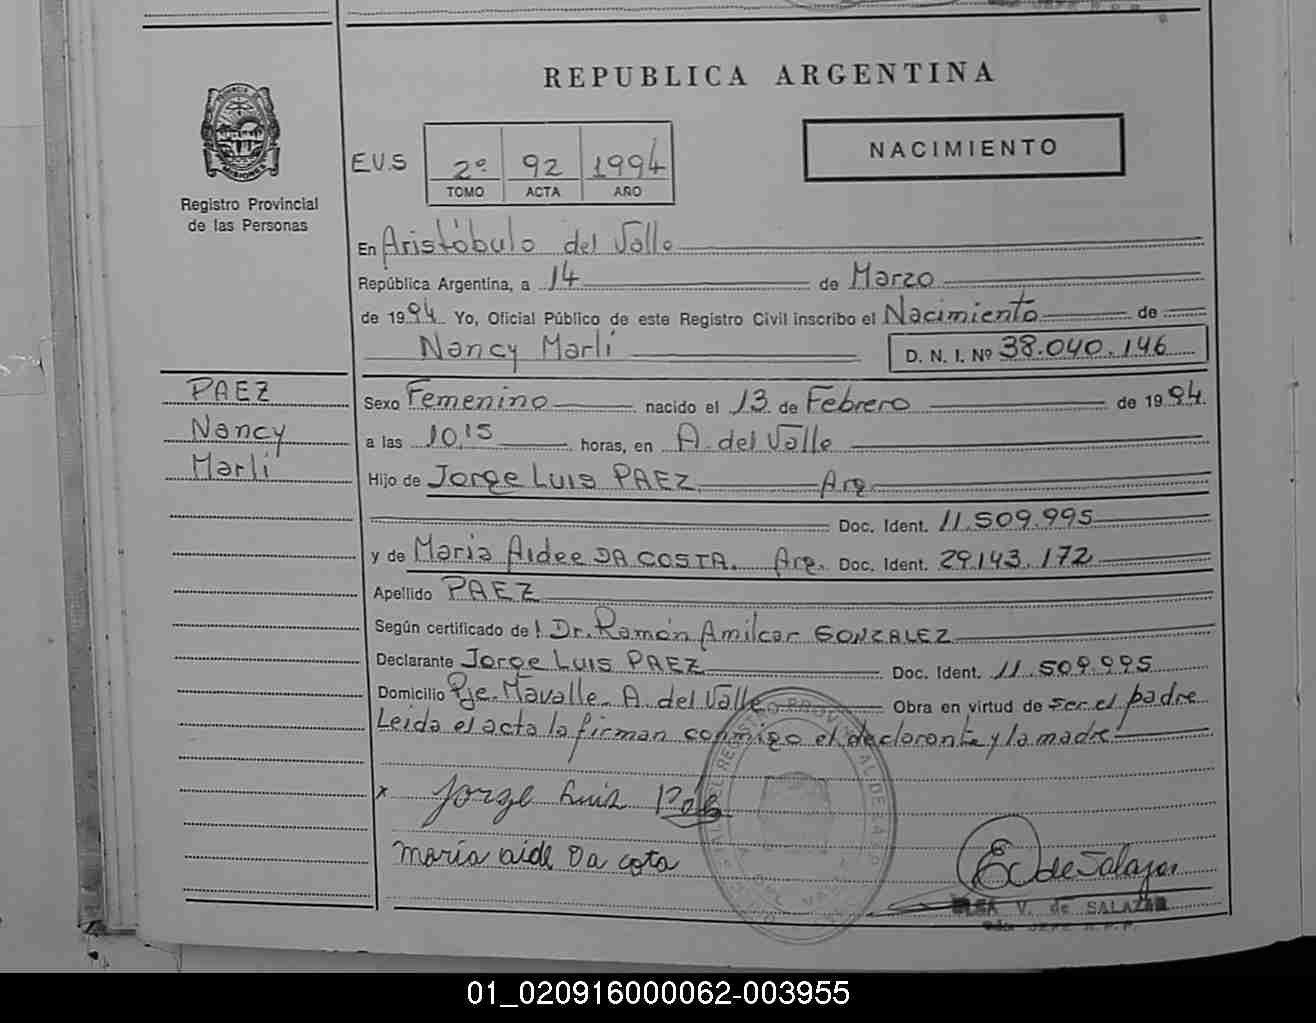 REPUBLICA ARGENTINA
MISIONES
Registro Provincial
de las Personas
E.V.S
2º 92 1994
TOMO ACTA AÑO
NACIMIENTO
En Aristóbulo del Valle
República Argentina, a 14 de Marzo
de 1994 Yo, Oficial Público de este Registro Civil inscribo el Nacimiento de
Nancy Marlí D. N. I. Nº 38.040.146
PAEZ
Nancy
Marlí
Sexo Femenino nacido el 13 de Febrero de 1994.
a las 10,15 horas, en A. del Valle
Hijo de Jorge Luis PAEZ Arg.
Doc. Ident. 11.509.995
y de María Aidee DA COSTA. Arg. Doc. Ident. 29.143.172
Apellido PAEZ
Según certificado de Dr. Ramón Amilcar GONZALEZ
Declarante Jorge Luis PAEZ Doc. Ident. 11.509.995
Domicilio Pje. Mavalle. A. del Valle Obra en virtud de ser el padre
Leida el acta la firman conmigo el declarante y la madre
x Jorge Luis
maría aide Da cota
E de Salazar
ELSA V. de SALAZAR
01_020916000062-003955